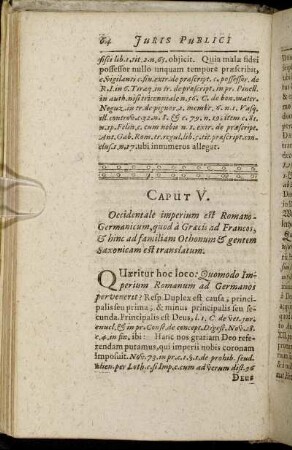 64 JURIS PUBLICI
fisis lib. 1. tit. 2. n. 65. objicit. Quia malæ fidei
possessor nullo unquam tempore præscribit,
c. Vigilanti c. fin. extr. de præscript. c. possessor. de
R. I. in C. Tiraq. in tr. de præscript. in pr. Penell.
in auth. nisi triennale n. 56. C. de bon. mater.
Neguz. in tr. de pignor. 2. membr. 4. n. 1. Vasq.
Ant. Gab. Rom. tr. regul. lib. tit. præscript.
tubi innumeros allegat.
CAPUT V.
Occidentale imperium est Romano-
Germanicum, quod à Græcis ad Francos,
& hinc ad familiam Othonum & gentem
Saxonicam est translatum.
QUæritur hoc loco: Quomodo Im-
perium Romanum ad Germanos
pervenerit? Resp. Duplex est causa; princi-
palis seu prima; & minus principalis seu se-
cunda. Principalis est Deus, l. 1. C. de vet. jur.
enucl. & in pr. Const. de concept. Digest. Nov. 28.
c. 4. in fin. ibi: Hanc nos gratiam Deo refe-
rendam putamus, qui imperii nobis coronam
imposuit. Nov. 73. in pr. c. 1. §. 1. de prohib. feud.
alien. per Loth. c. si Imp. c. cum ad verum dist. 96
DEUS